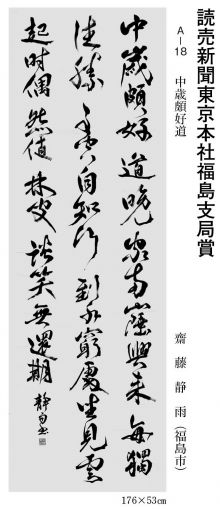 読売新聞東京本社福島支局賞
A-18　中歳頗好道
齋藤静雨(福島市)
中歳頗好道晩家南山陲興来毎獨
往勝事空自知行到水窮處坐見雲
起時偶然値林叟談笑無還期 静雨書
176×53㎝